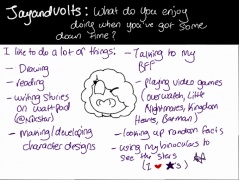 Jayandvolts: What do you enjoy
doing when you've got some
down time?
I like to do a lot of things:
- Drawing
- reading
- writing stories
on wattpad
- making/developing
character designs
- Talking to my
BFF
- playing video games
(overwatch, Little
Nightmares, Kingdom
Hearts, Barman)
- looking up random facts
- using my binoculars to
see the stars
(I ♥ ★'s)